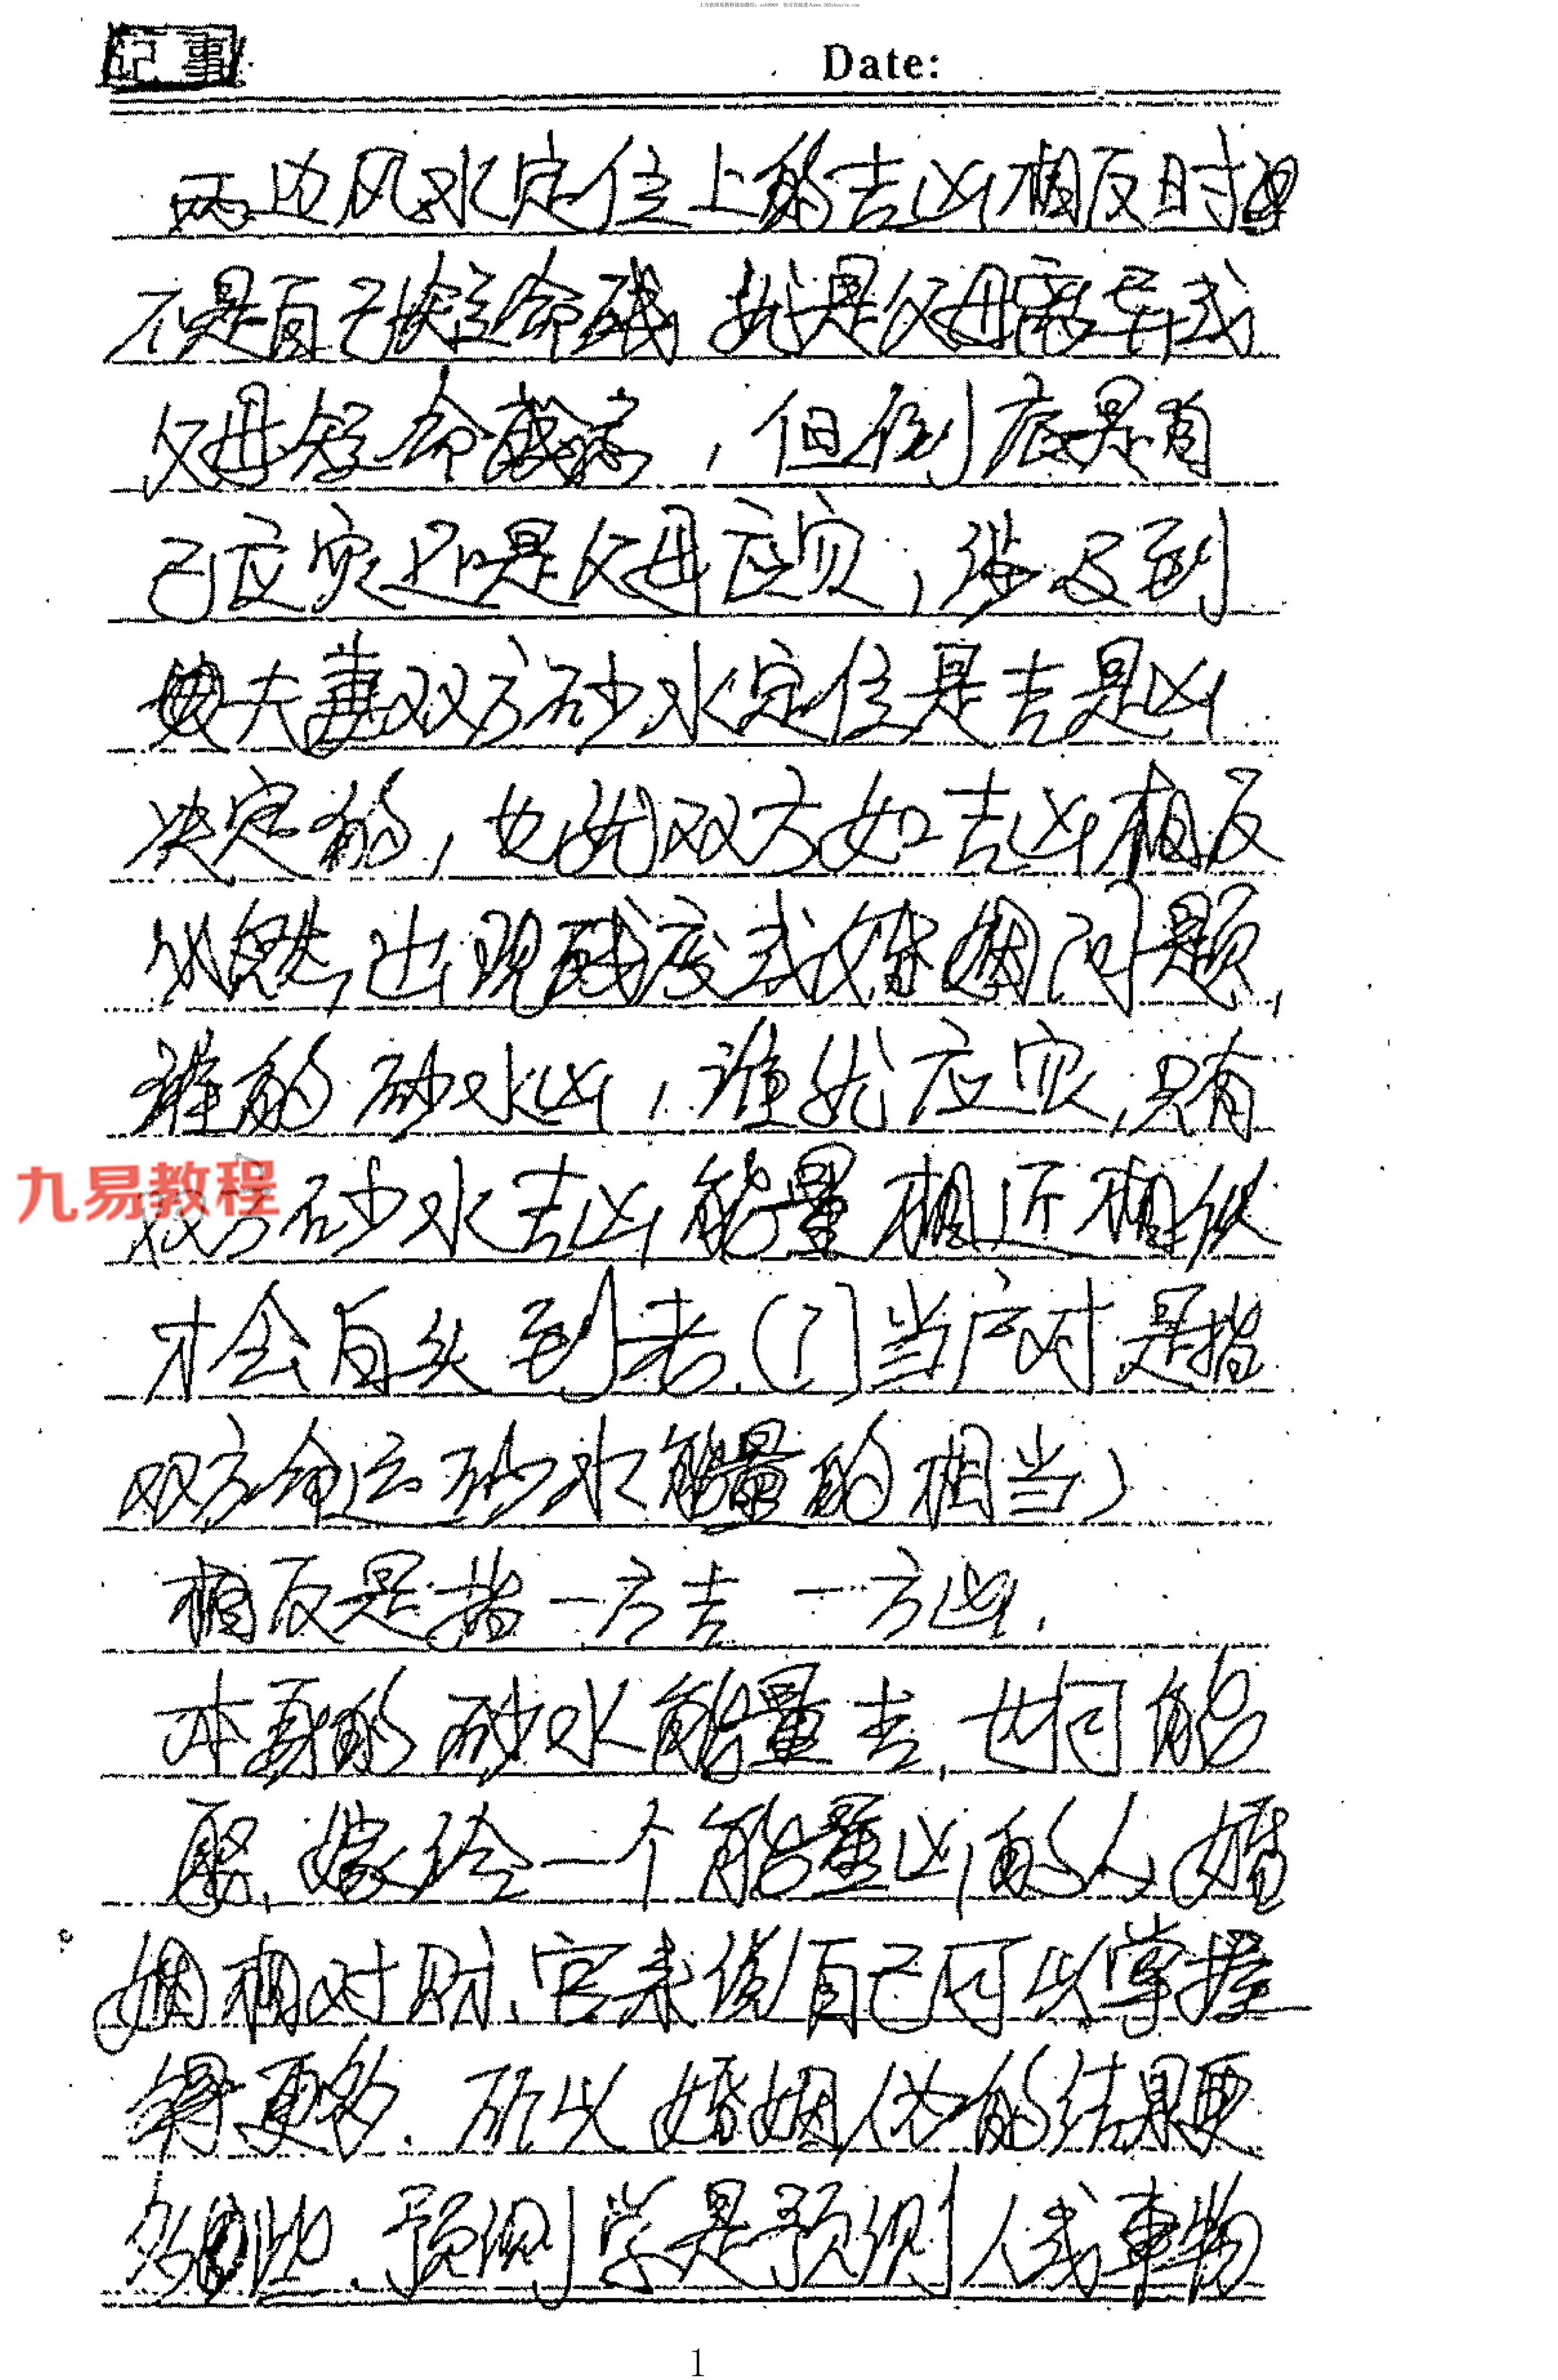 记事
Date:
两边风水定位上的吉凶相反时
不是自己短命残，就是父母离异或
父母短命残疾，但到底是自
己应灾还是父母应灾，涉及到
夫妻双方砂水定位是吉是凶
决定的，也就双方如吉凶相反
必然出现残废或婚姻问题，
谁的砂水凶，谁就应灾，只有
双方砂水吉凶能量相近相似
才会白头到老。（门当户对是指
双方命运砂水能量的相当）
相反是指一方吉 一方凶．
本身的砂水能量吉，也可能
娶、嫁给一个能量凶的人，婚
姻相对财、官来说自己可以掌握
得更多．所以婚姻人为的结果要
多些．预测学是预测人或事物
九易教程
1